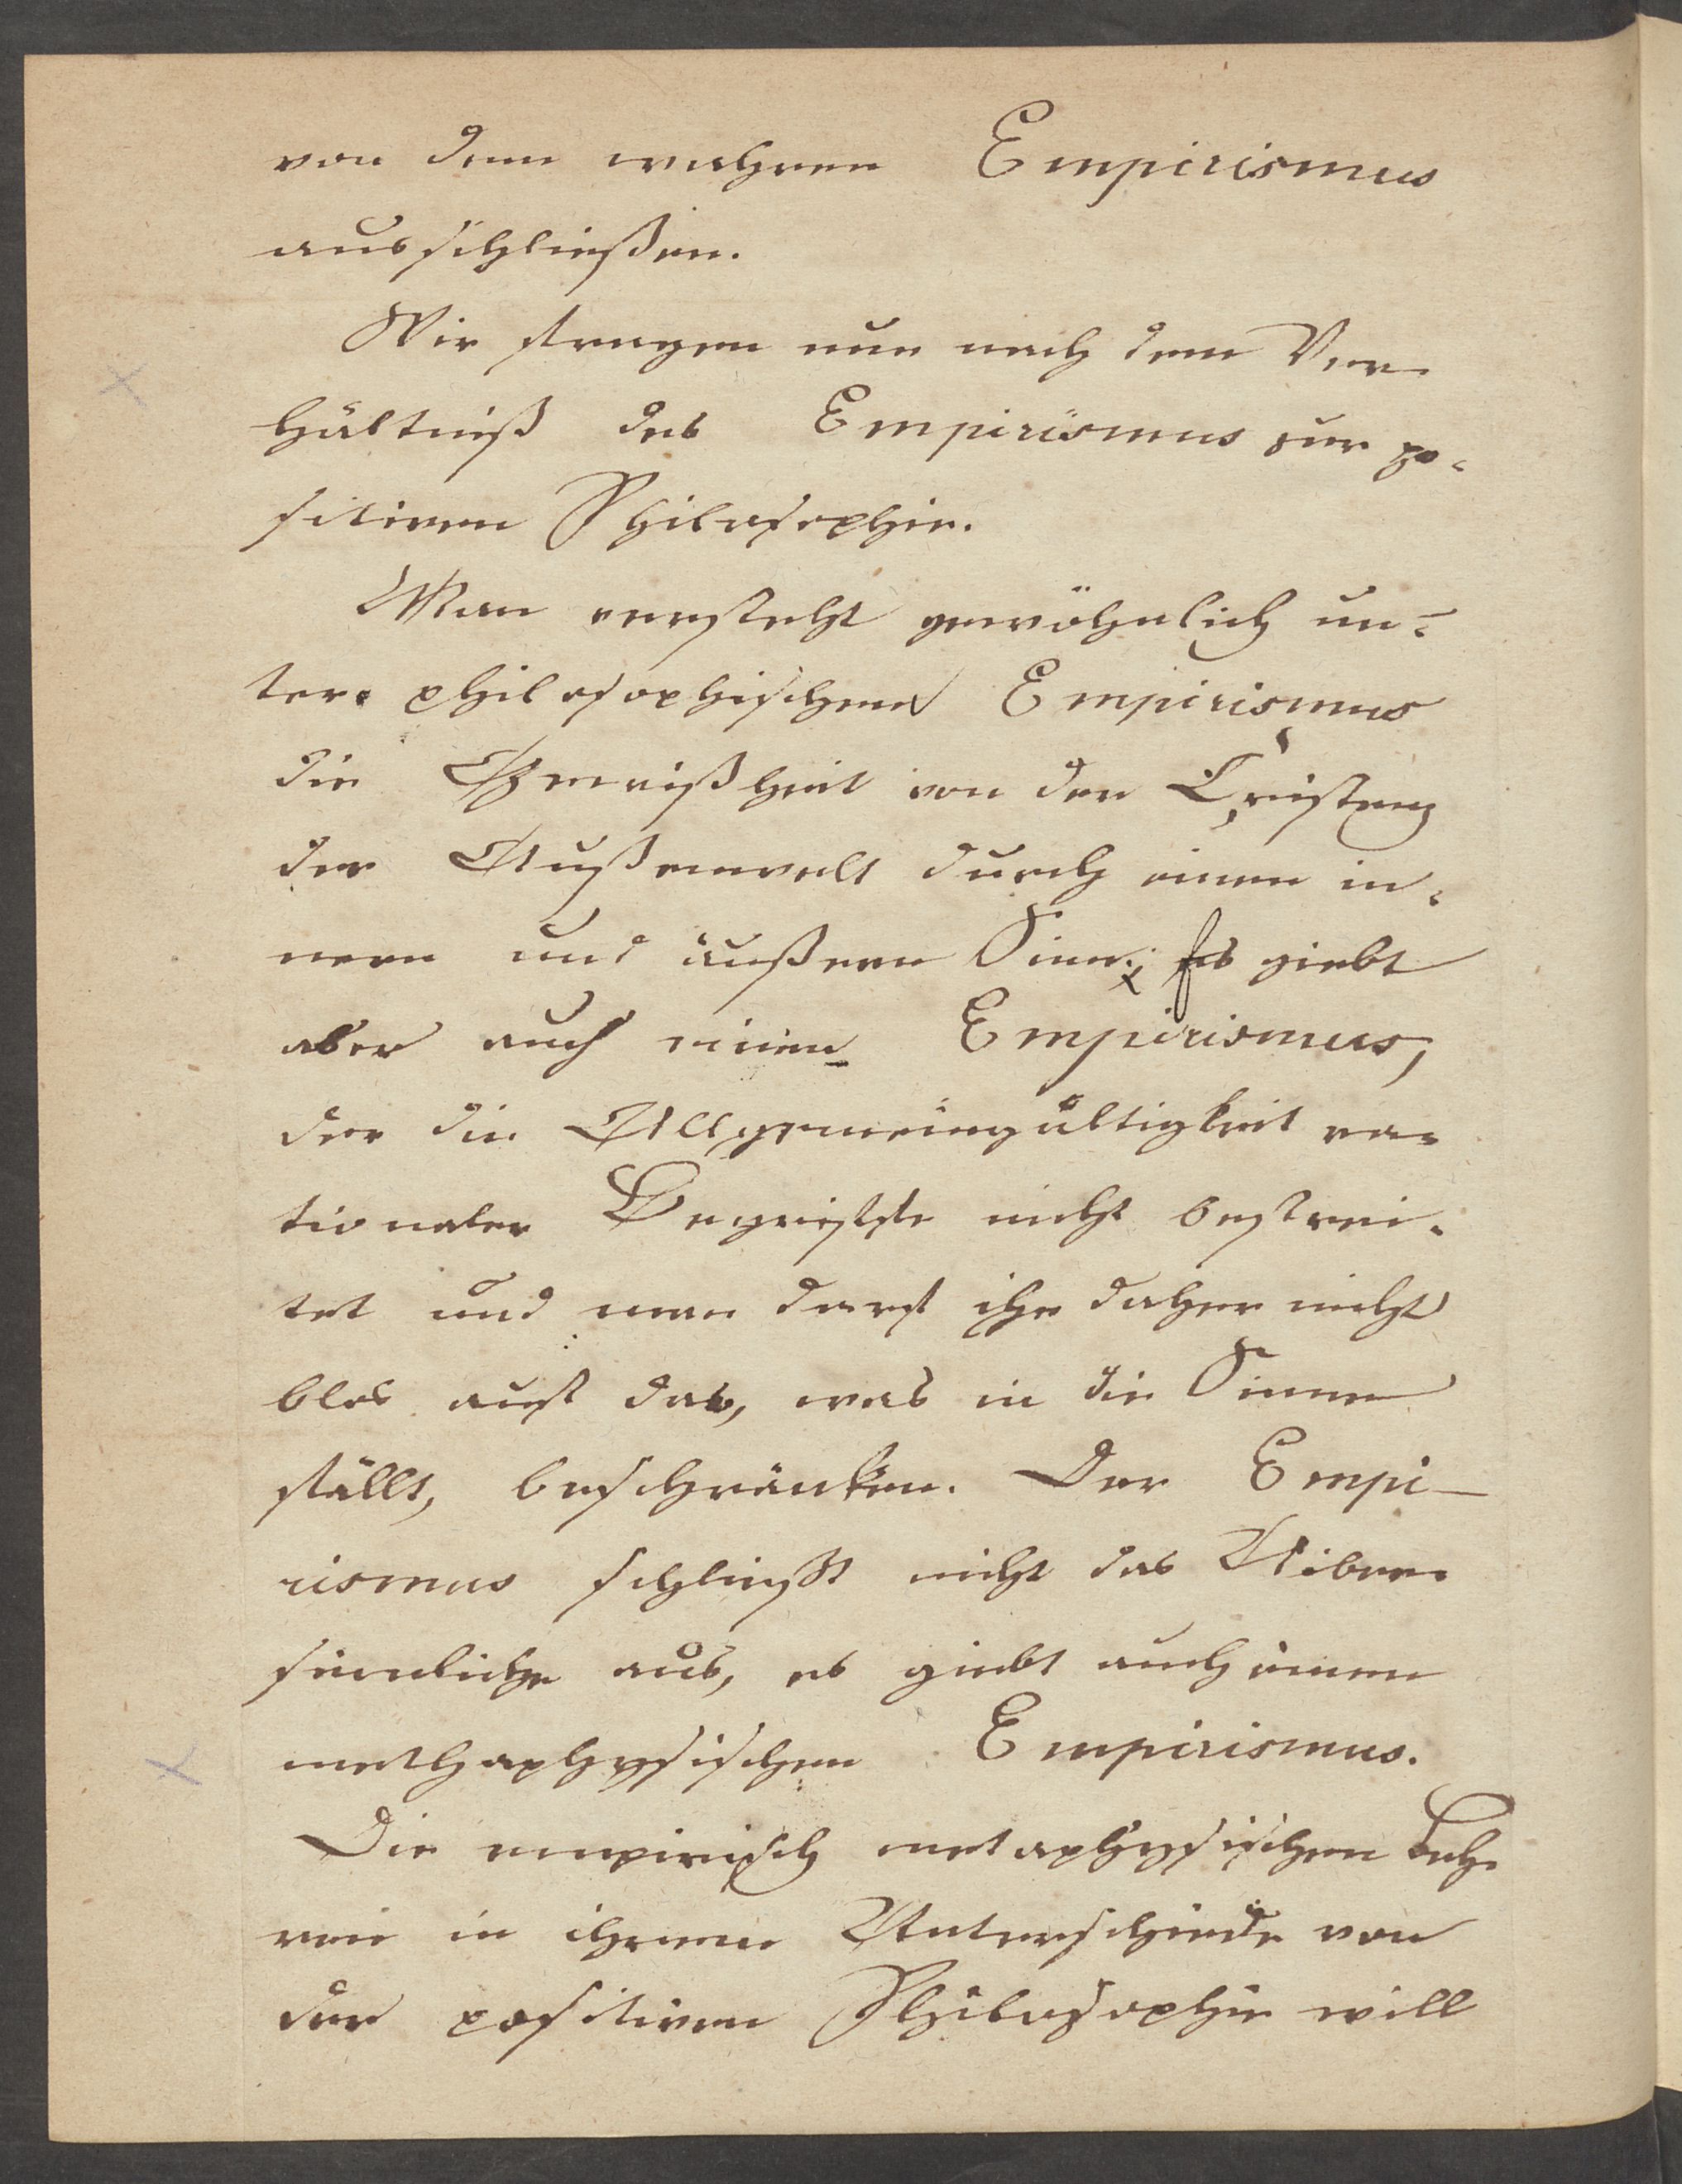 von dem wahren Empirismus
ausschließen.
Wir fragen nun nach dem Ver-
hältniß des Empirismus zur po-
sitiven Philosophie.
Man versteht gewöhnlich un-
ter philosophischem Empirismus
die Gewißheit von der Existenz
der Außenwelt durch einen in-
nern und äußern Sinn; es giebt
aber auch einen Empirismus,
der die Allgemeingültigkeit ra-
tionaler Begriffe nicht bestrei-
tet und man darf ihn daher nicht
blos auf das, was in die Sinne
fällt, beschränken. Der Empi-
rismus schließt nicht das Ueber-
sinnliche aus, es giebt auch einen
methaphysischen Empirismus.
Die empirisch metaphysischen Leh-
ren in ihrem Unterschiede von
der positiven Philosophie will